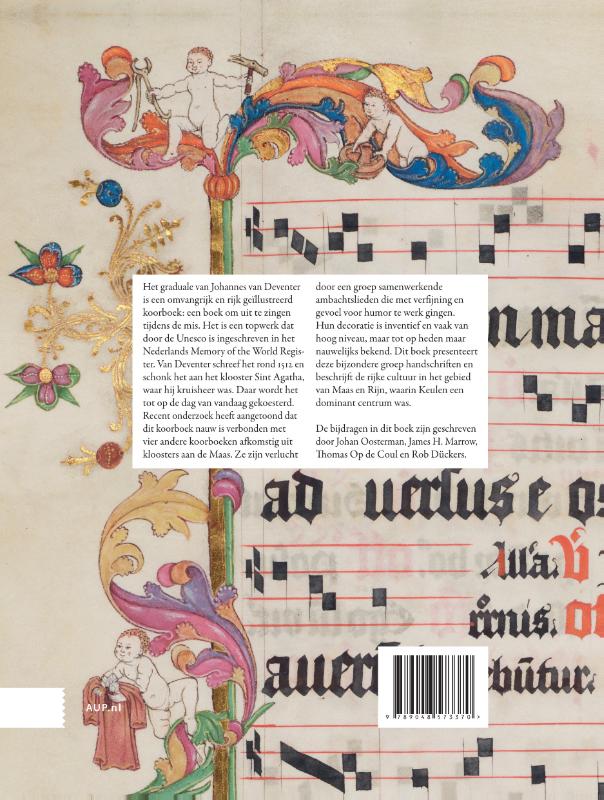 Het graduale van Johannes van Deventer
is een omvangrijk en rijk geïllustreerd
koorboek: een boek om uit te zingen
tijdens de mis. Het is een topwerk dat
door de Unesco is ingeschreven in het
Nederlands Memory of the World Regis-
ter. Van Deventer schreef het rond 1512 en
schonk het aan het klooster Sint Agatha,
waar hij kruisheer was. Daar wordt het
tot op de dag van vandaag gekoesterd.
Recent onderzoek heeft aangetoond dat
dit koorboek nauw is verbonden met
vier andere koorboeken afkomstig uit
kloosters aan de Maas. Ze zijn verlucht
door een groep samenwerkende
ambachtslieden die met verfijning en
gevoel voor humor te werk gingen.
Hun decoratie is inventief en vaak van
hoog niveau, maar tot op heden maar
nauwelijks bekend. Dit boek presenteert
deze bijzondere groep handschriften en
beschrijft de rijke cultuur in het gebied
van Maas en Rijn, waarin Keulen een
dominant centrum was.
De bijdragen in dit boek zijn geschreven
door Johan Oosterman, James H. Marrow,
Thomas Op de Coul en Rob Dückers.
ad uersus e os
Alla. V
AUP.nl
9 789048 573370 >